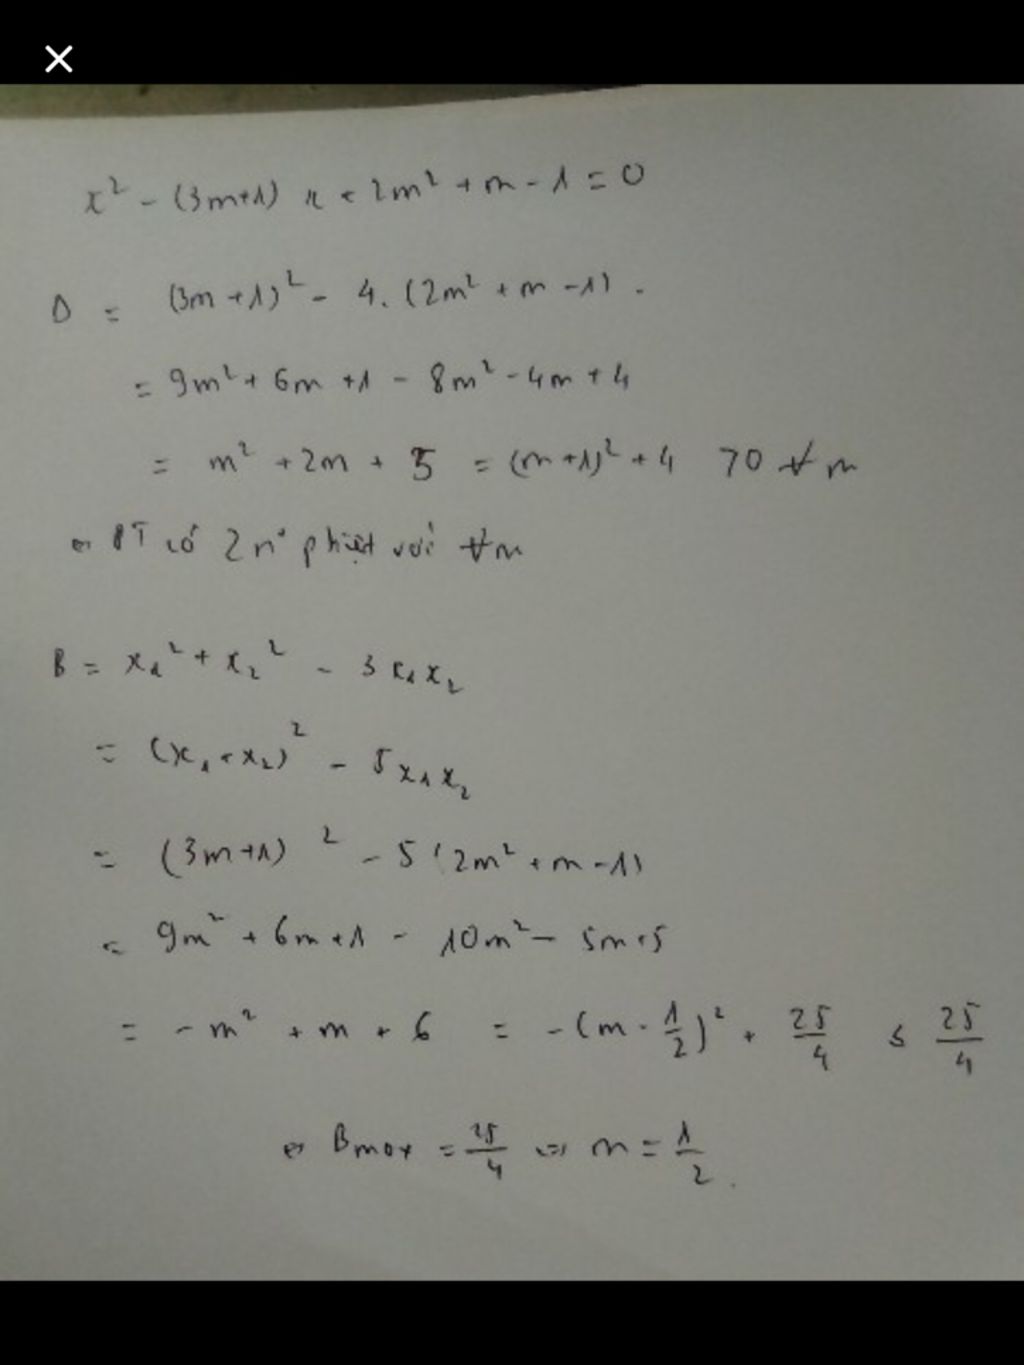 x² - (3m+1) x + 2m² + m - 1 = 0
Δ = (3m+1)² - 4.(2m² + m - 1).
= 9m² + 6m + 1 - 8m² - 4m + 4
= m² + 2m + 5 = (m+1)² + 4 > 0 ∀ m
⇒ PT có 2 n° phiệt với ∀m
B = x₁² + x₂² - 3x₁x₂
= (x₁+x₂)² - 5x₁x₂
= (3m+1)² - 5(2m² + m - 1)
= 9m² + 6m + 1 - 10m² - 5m + 5
= -m² + m + 6 = -(m - 1/2)² + 25/4 ≤ 25/4
⇒ Bmax = 25/4 ⇔ m = 1/2.